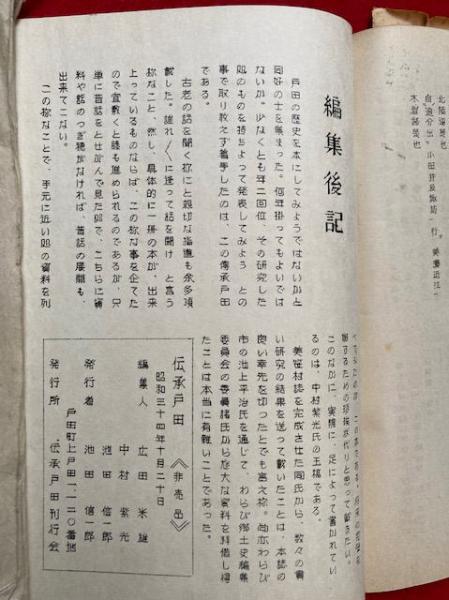 編集後記
戸田の歴史を本にしてみようではないかと
同好の士を集まつた。何年掛つてもよいでは
ないか。少なくとも年二回位、その研究した
処のものを持ちよつて発表してみよう との
事で取り敢えず着手したのは、この傳承戸田
である。
古老の話を聞く称にと親切な指導も分多項
戴した。誰れ/\に逢つて話を聞け と言う
称なこと 然し、具体的に一冊の本が、出来
上つているものならば、この称な事を企てた
ので宜敷くと話も進められるのであるが、只
単に昔話をとせがんで見た処で、こちらに資
料や話のつぎ穂がなければ、昔話の展開も
出来てこない。
この称なことで、手元に近い処の資料を列
このなかに、実際に、足によつて書かれてい
るのは、中村紫光氏の玉稿である。
美笹村誌を完成させた同氏から、数々の貴
い研究の結果を送つて戴いたことは、本誌の
良い幸先を切つたとでも言え称。尚亦わらび
市の池上平治氏を通じて、わらび郷土史編集
委員会の委員諸氏から尨大な資料を拝借し得
たことは本当に有難いことであつた。
伝承戸田 《非売品》
昭和三十四年十月二十日
編集人 広田 米雄
中村 紫光
池田 信一郎
発行者 池田 信一郎
戸田町上戸田一、一二〇番地
発行所 伝承戸田刊行会